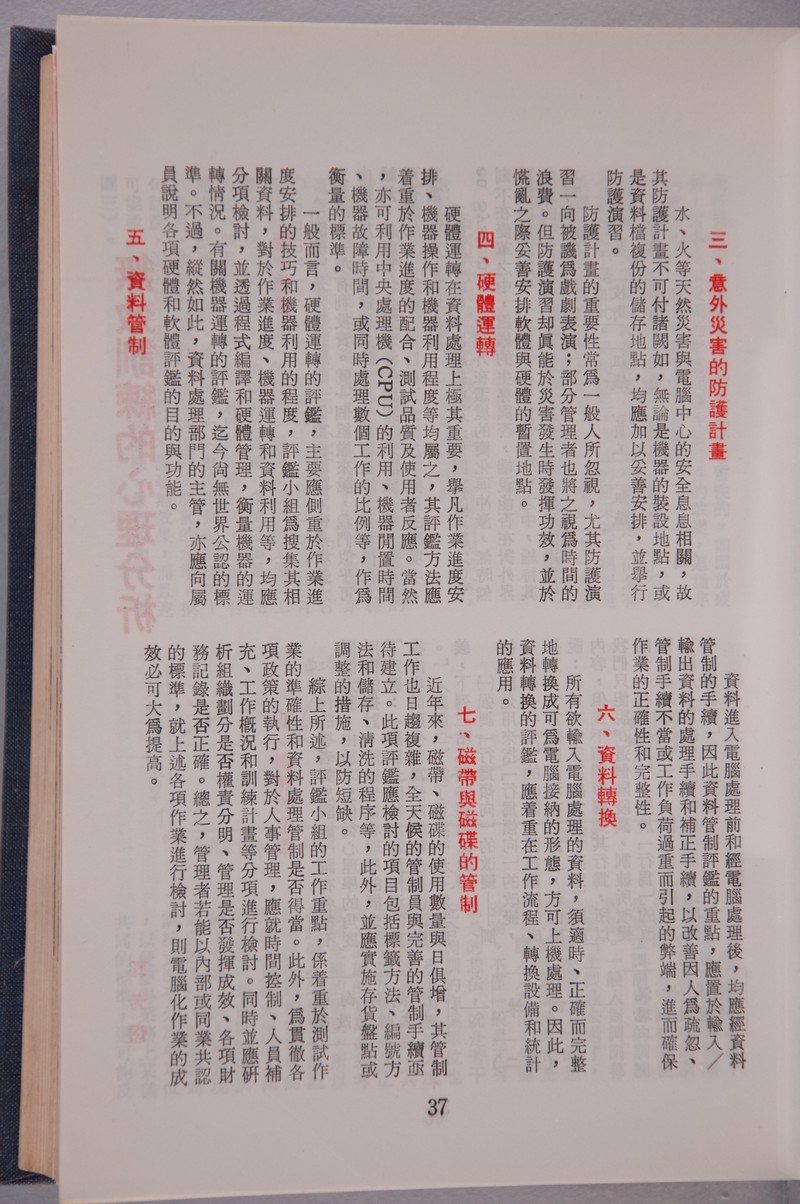 三、意外災害的防護計畫
水、火等天然災害與電腦中心的安全息息相關，故
其防護計畫不可付諸闕如，無論是機器的裝設地點，或
是資料檔複份的儲存地點，均應加以妥善安排，並舉行
防護演習。
防護計畫的重要性常爲一般人所忽視，尤其防護演
習一向被譏爲戲劇表演；部分管理者也將之視爲時間的
浪費。但防護演習却眞能於災害發生時發揮功效，並於
慌亂之際妥善安排軟體與硬體的暫置地點。
四、硬體運轉
硬體運轉在資料處理上極其重要，擧凡作業進度安
排、機器操作和機器利用程度等均屬之，其評鑑方法應
着重於作業進度的配合、測試品質及使用者反應。當然
，亦可利用中央處理機（CPU）的利用、機器閒置時間
、機器故障時間，或同時處理數個工作的比例等，作爲
衡量的標準。
一般而言，硬體運轉的評鑑，主要應側重於作業進
度安排的技巧和機器利用的程度，評鑑小組爲搜集其相
關資料，對於作業進度、機器運轉和資料利用等，均應
分項檢討，並透過程式編譯和硬體管理，衡量機器的運
轉情況。有關機器運轉的評鑑，迄今尙無世界公認的標
準。不過，縱然如此，資料處理部門的主管，亦應向屬
員說明各項硬體和軟體評鑑的目的與功能。
五、資料管制
資料進入電腦處理前和經電腦處理後，均應經資料
管制的手續，因此資料管制評鑑的重點，應置於輸入／
輸出資料的處理手續和補正手續，以改善因人爲疏忽、
管制手續不當或工作負荷過重而引起的弊端，進而確保
作業的正確性和完整性。
六、資料轉換
所有欲輸入電腦處理的資料，須適時、正確而完整
地轉換成可爲電腦接納的形態，方可上機處理。因此，
資料轉換的評鑑，應着重在工作流程、轉換設備和統計
的應用。
七、磁帶與磁碟的管制
近年來，磁帶、磁碟的使用數量與日俱增，其管制
工作也日趨複雜，全天候的管制員與完善的管制手續亟
待建立。此項評鑑應檢討的項目包括標籤方法、編號方
法和儲存、淸洗的程序等，此外，並應實施存貨盤點或
調整的措施，以防短缺。
綜上所述，評鑑小組的工作重點，係着重於測試作
業的準確性和資料處理管制是否得當。此外，爲貫徹各
項政策的執行，對於人事管理，應就時間控制、人員補
充、工作概況和訓練計畫等分項進行檢討。同時並應研
析組織劃分是否權責分明、管理是否發揮成效、各項財
務記錄是否正確。總之，管理者若能以內部或同業共認
的標準，就上述各項作業進行檢討，則電腦化作業的成
效必可大爲提高。
37